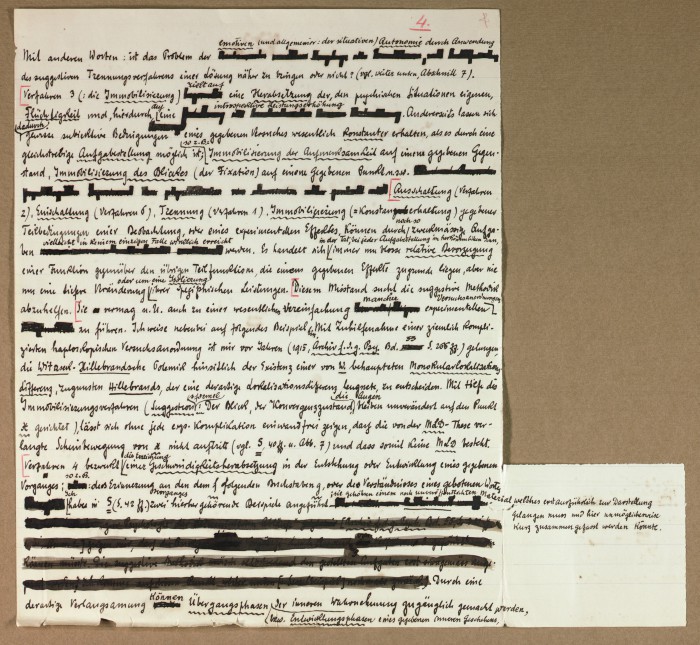 4.
(und allgemeiner: der situativen) Autonomie durch Anwendung
Mit anderen Worten: ist das Problem der
des suggestiven Trennungsverfahrens einer Lösung näher zu bringen oder nicht? (vgl. weiter unten, Abschnitt 7).
Verfahren 3 (: die Immobilisierung) zielt auf eine Herabsetzung der, den psychischen Situationen eigenen,
Flüchtigkeit und, hierdurch auf eine introspektive Leistungserhöhung. Andererseits lassen sich
dadurch gewisse subjektive Bedingungen eines gegebenen Versuches wesentlich konstanter erhalten, als es durch eine
gleichstrebige Aufgabestellung möglich ist; so z.B. Immobilisierung der Aufmerksamkeit auf einen gegebenen Gegen-
stand, Immobilisierung des Blickes (der Fixation) auf einen gegebenen Punkt u.s.w.
Ausschaltung (Verfahren
2), Einschaltung (Verfahren 6), Trennung (Verfahren 1), Immobilisierung (= Konstanterhaltung) gegebener
Teilbedingungen einer Beobachtung, oder eines experimentellen Effektes, können durch noch so zweckmässig Aufga-
ben vielleicht in keinem einzigen Falle wirklich erreicht werden. Es handelt sich in der Tat, bei jeder Aufgabestellung im herkömmlichen Sinn, immer um blosse relative Bevorzugung
einer Funktion gegenüber den übrigen Teilfunktionen, die einem gegebenen Effekte zugrunde liegen, aber nie
um eine Veränderung oder um eine Isolierung ihrer spezifischen Leistungen. Diesem Misstand sucht die suggestive Methodik
abzuhelfen. Sie vermag u.U. auch zu einer wesentlichen Vereinfachung mancher experimentellen Versuchsanordnungen
zu führen. Ich weise nebenbei auf folgendes Beispiel. Mit Zuhilfenahme einer ziemlich kompli-
zierten haploskopischen Versuchsanordnung ist mir vor Jahren (1915, Archiv f. d. g. Psy. Bd. 33 S. 206 ff.) gelungen
die Witasek-Hillebrandsche Polemik hinsichtlich der Existenz einer von W. behaupteten Monokularlokalisations-
differenz, zugunsten Hillebrands, der eine derartige Lokalisationsdifferenz leugnete, zu entscheiden. Mit Hilfe des
Immobilisierungsverfahrens (Suggestionsformel: „Der Blick, der Konvergenzzustand, die Augen bleiben unverändert auf den Punkt
x gerichtet), lässt sich ohne jede exp. Komplikation einwandfrei zeigen, dass die von der MLD-These ver-
langte Scheinbewegung von x nicht auftritt (vgl. S. 40 ff. u. Abb. 7) und dass somit keine MLD besteht.
Verfahren 4 bezweckt die Erreichung einer Geschwindigkeitsherabsetzung in der Entstehung oder Entwicklung eines gegebenen
Vorganges; so z.B. der Erinnerung an den dem f folgenden Buchstaben g, oder des Verständnisses eines gebotenen Wortes.
Ich habe in S (S. 42 ff.) zwei hierher gehörende Beispiele angeführt. Sie gehören einem noch unveröffentlichten Material, welches erst ausführlich zur Darstellung
gelangen muss und hier unmöglicherweise
kurz zusammengefasst werden könnte.
Durch eine
derartige Verlangsamung können Übergangsphasen der inneren Wahrnehmung zugänglich gemacht werden,
(bzw. Entwicklungsphasen eines gegebenen inneren Geschehens,